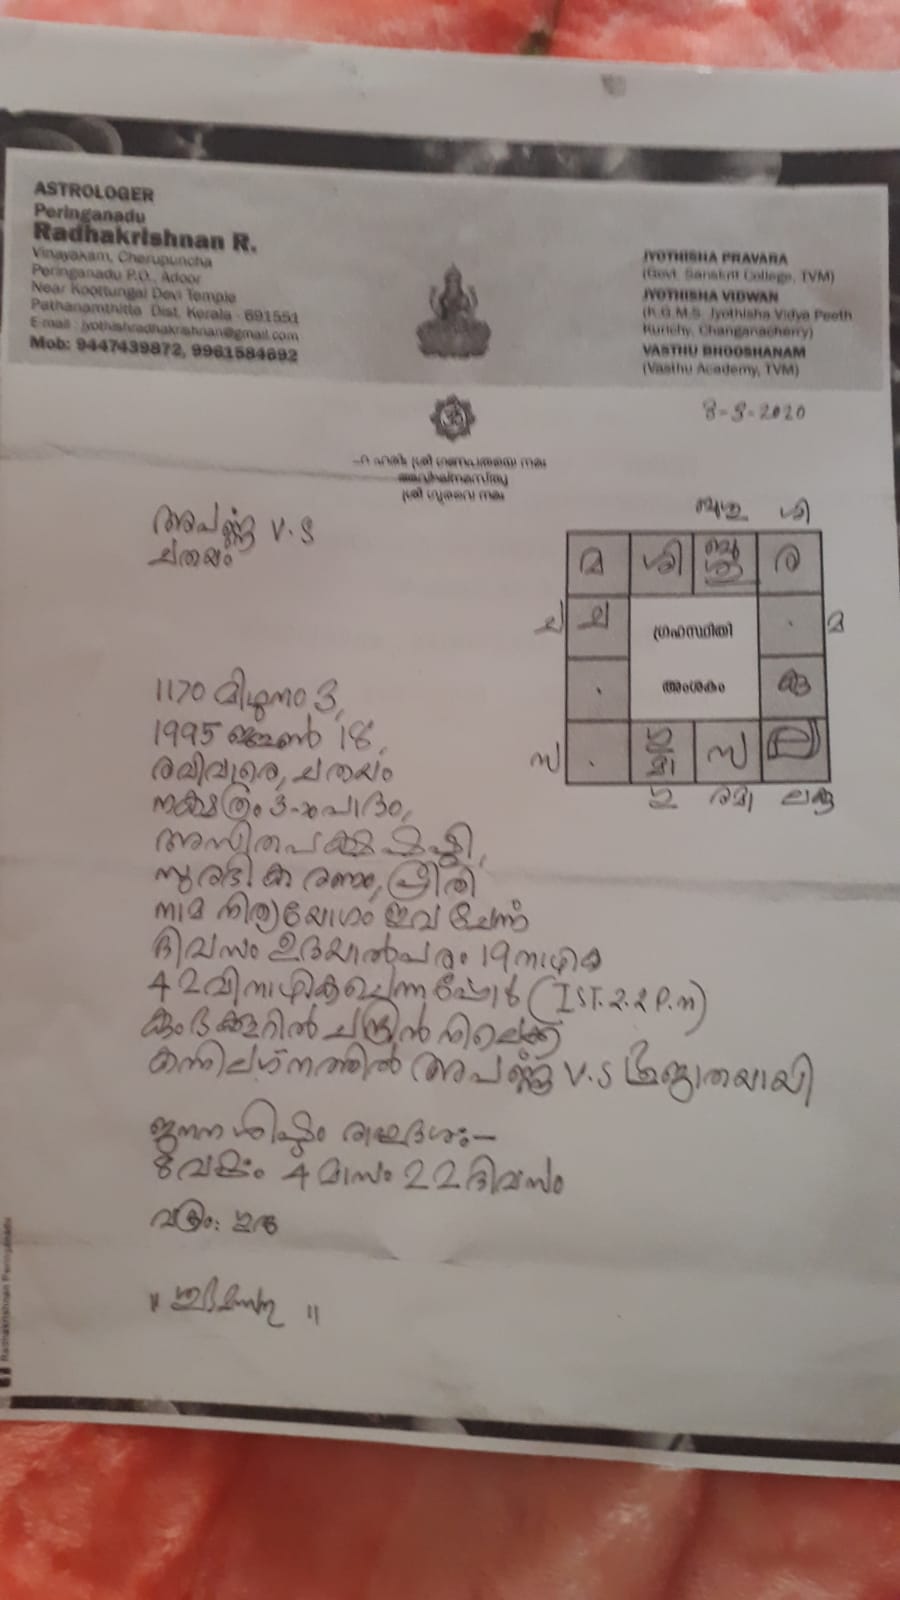 ASTROLOGER
Peringanadu
Radhakrishnan R.
Vinayakam, Cherupuncha
Peringanadu P.O., Adoor
Near Koottungal Devi Temple
Pathanamthitta Dist. Kerala - 691551
E-mail : jyothishradhakrishnan@gmail.com
Mob: 9447439872, 9961584692
JYOTHISHA PRAVARA
(Govt. Sanskrit College, TVM)
JYOTHISHA VIDWAN
(K.G.M.S. Jyothisha Vidya Peeth
Kurichy, Changanacherry)
VASTHU BHOOSHANAM
(Vasthu Academy, TVM)
8-8-2020
ഹരിഃ ശ്രീ ഗണപതയെ നമഃ
അവിഘ്നമസ്തു
ശ്രീ ഗുരവെ നമഃ
അപർണ്ണ V.S
ചതയം
ശി
മ ശി ര
ച ച ഗ്രഹസ്ഥിതി മ
അംശകം
സ സ ല
1170 മിഥുനം 3,
1995 ജൂൺ 18,
രവിവാരെ, ചതയം
നക്ഷത്രം 3-ാം പാദം,
അസിതപക്ഷ ഷഷ്ഠി,
സുരഭി കരണം, പ്രീതി
നാമ നിത്യയോഗം ഇവ ചേർന്ന
ദിവസം ഉദയാൽപരം 19 നാഴിക
42 വിനാഴിക ചെന്നപ്പോൾ (IST. 2.2 P.m)
കുംഭക്കൂറിൽ ചന്ദ്രൻ നിൽക്കെ
കന്നിലഗ്നത്തിൽ അപർണ്ണ V.S ജാതയായി
ജനനശിഷ്ടം രാഹുദശഃ—
8 വർഷം 4 മാസം 22 ദിവസം
വക്രം: ഗു
॥ ശുഭമസ്തു ॥
Radhakrishnan Peringanadu